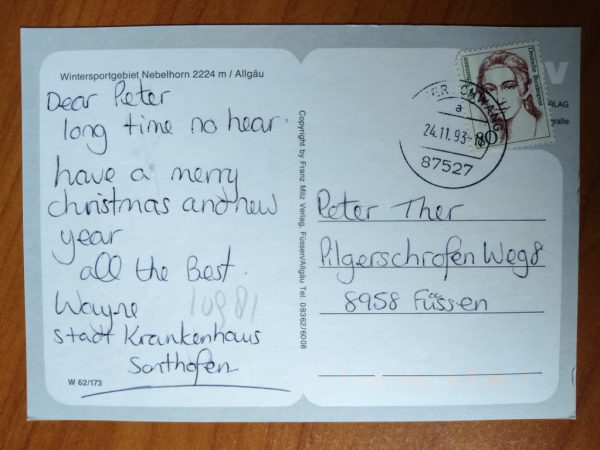 Wintersportgebiet Nebelhorn 2224 m / Allgäu
Dear Peter
long time no hear.
have a merry
christmas and new
year
all the Best.
Wayne
stadt Krankenhaus
Sonthofen
W 62/173
Copyright by Franz Milz Verlag, Füssen/Allgäu Tel. 08362/6008
Deutsche Bundespost
80
a
24.11.93-
87527
RLAG
grafie
Peter Ther
Pilgerschrofen Weg 8
8958 Füssen